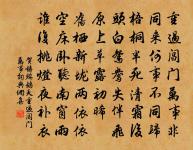 重過閶門萬事非
同來何事不同歸
梧桐半死清霜後
頭白鴛鴦失伴飛
原上草露初晞
舊棲新垅兩依依
空床臥聽南窗雨
誰復挑燈夜補衣
賀鑄鷓鴣天重過閶門
萬事詞典網集